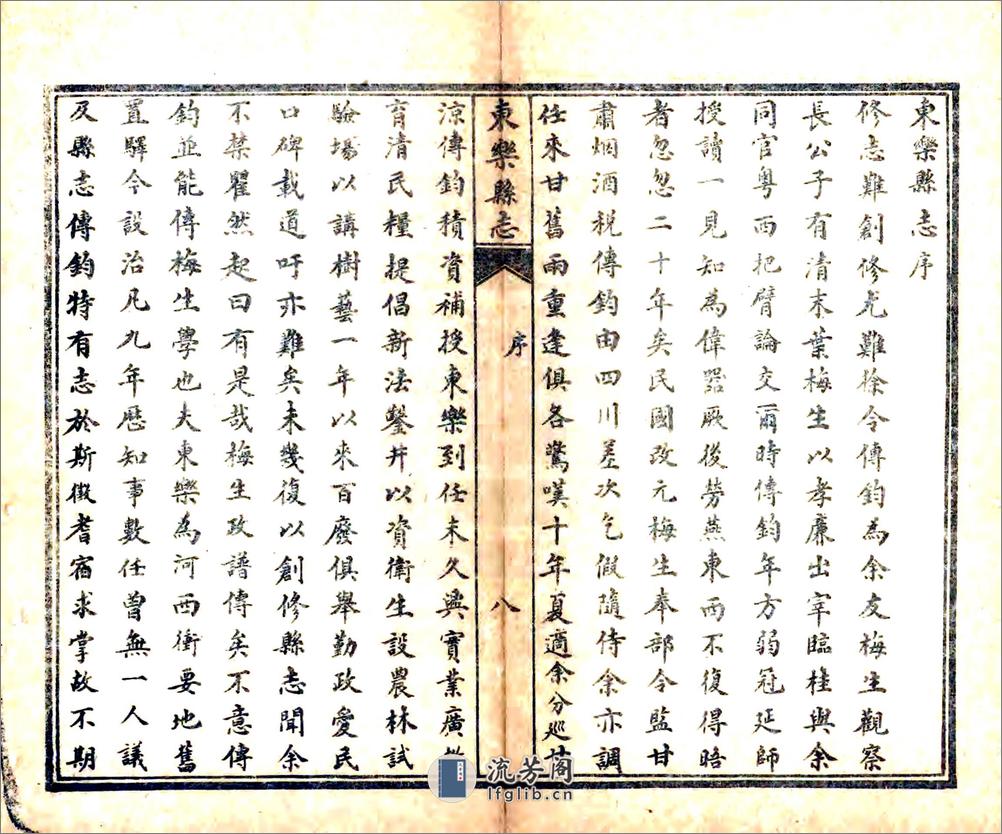 東樂縣志序
修志難創修尤難徐令傳鈞為余友梅生觀察
長公子有清末葉梅生以孝廉出宰臨桂與余
同官粵西把臂論交爾時傳鈞年方弱冠延師
授讀一見知為偉器厥後勞燕東西不復得晤
者忽忽二十年矣民國改元梅生奉部令監甘
肅烟酒稅傳鈞由四川差次乞假隨侍余亦調
任來甘舊雨重逢俱各驚嘆十年夏適余分巡甘
東樂縣志
序
八
涼傳鈞積資補授東樂到任未久興實業廣
育清民糧提倡新法鑿井以資衛生設農林試
驗場以講樹藝一年以來百廢俱舉勤政愛民
口碑載道吁亦難矣未幾復以創修縣志聞余
不禁瞿然起曰有是哉梅生政譜傳矣不意傳
鈞並能傳梅生學也夫東樂為河西衝要地舊
置驛今設治凡九年歷知事數任曾無一人議
及縣志傳鈞特有志於斯徵耆宿求掌故不期
流芳阁
lfglib.cn